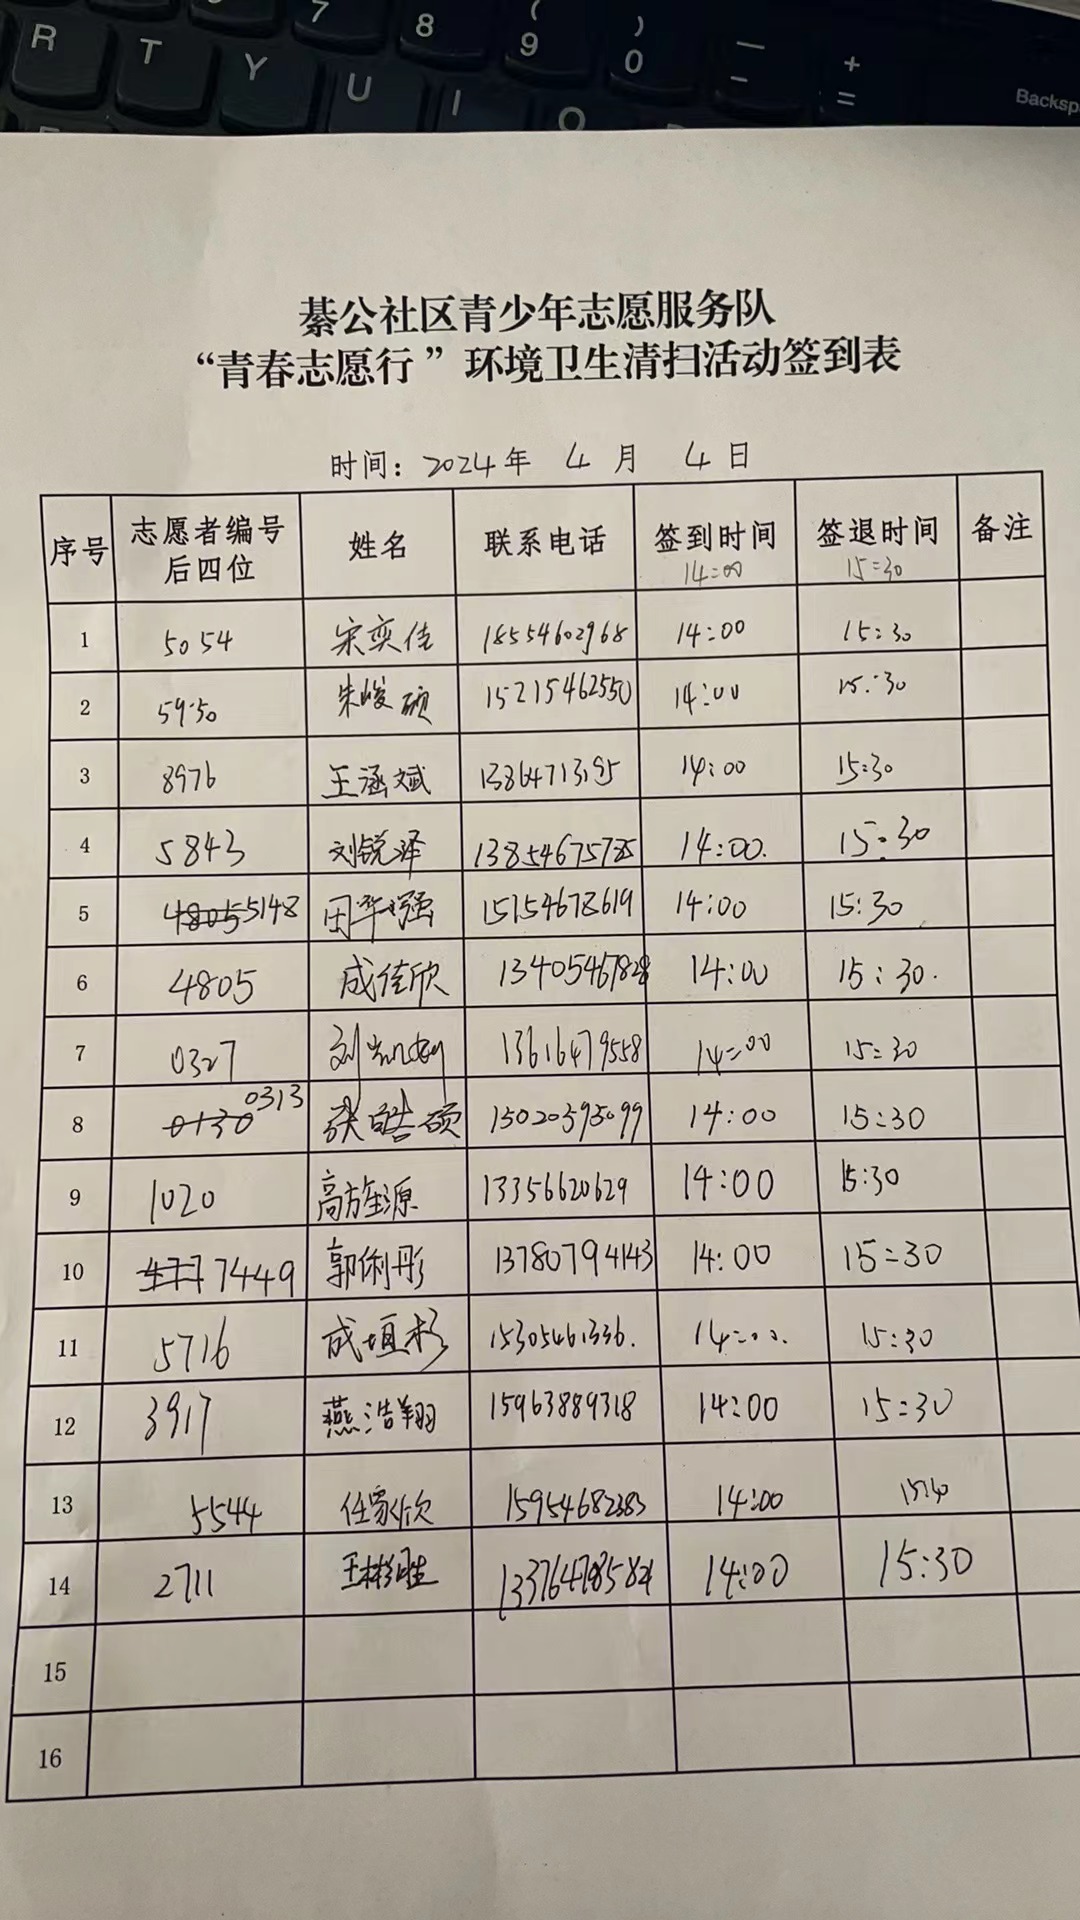 R T Y U I O
7 8 ( 9 ) 0 — - + = Backsp
綦公社区青少年志愿服务队
“青春志愿行 ”环境卫生清扫活动签到表
时间：2024年 4 月 4 日
序号 志愿者编号后四位 姓名 联系电话 签到时间 14:00 签退时间 15:30 备注
1 5054 宋奕佳 18554602968 14:00 15:30
2 5950 朱峻硕 15215462550 14:00 15:30
3 8976 王涵斌 14:00 15:30
4 5843 刘锐泽 14:00. 15:30
5 5148 田华强 15154678619 14:00 15:30
6 4805 成佳欣 13405467828 14:00 15:30.
7 0327 13616479558 14:00 15:30
8 0313 张皓硕 15020595099 14:00 15:30
9 1020 高旌源 13356620629 14:00 15:30
10 7449 郭俐彤 13780794143 14:00 15:30
11 5716 成垣杉 15305461336. 14:00. 15:30
12 3917 燕浩翔 15963889318 14:00 15:30
13 5544 任家欣 15954682383 14:00
14 2711 王彬胜 14:00 15:30
15
16